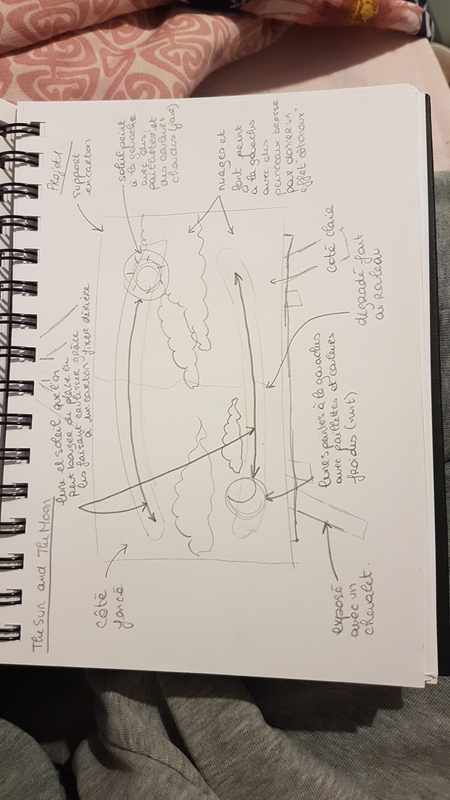 The Sun and The Moon
Projet 1
support
en carton
lune et soleil que l'on
peut bouger de place en
les faisant coulisser grâce
à un carton fixer derrière
soleil peint
à la gouache
avec des
paillettes et
des couleurs
chaudes (jour)
nuages et
font peint
à la gouache
avec des
pinceaux brosse
pour donner un
effet "cotoneux"
côté
foncé
côté claire
dégradé fait
au rouleau
lunes peintes à la gouaches
avec paillettes et couleurs
froides (nuit)
exposé
avec un
chevalet.